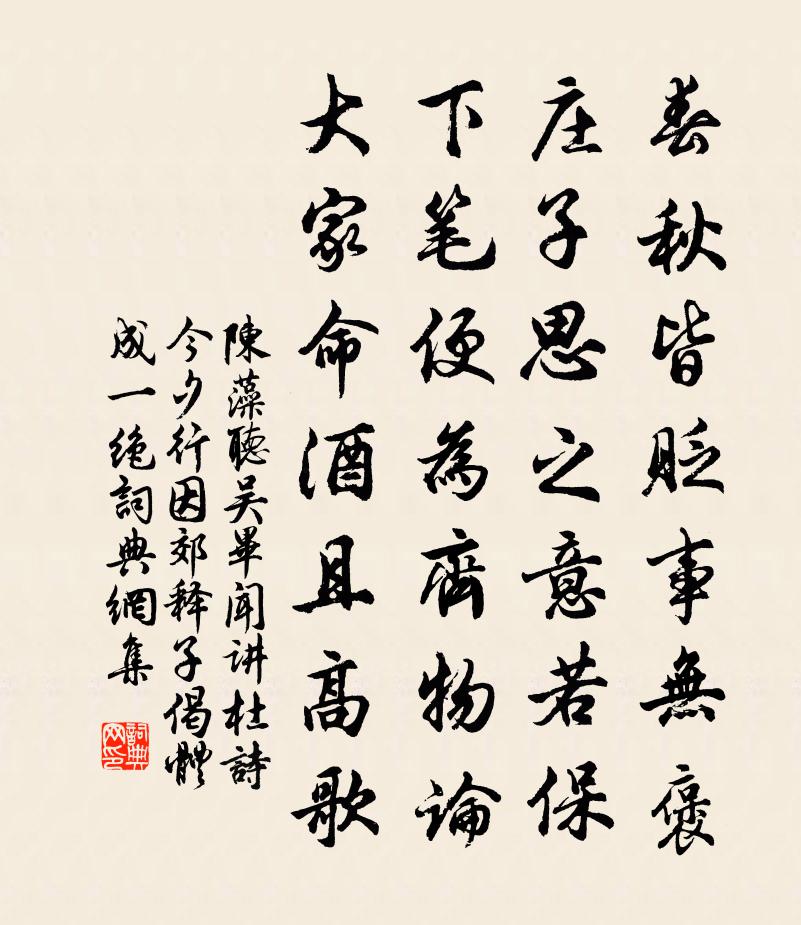 春秋皆貶事無褒
庄子思之意若保
下笔便為齊物論
大家命酒且高歌
陳藻聽吴畢闻讲杜詩
今夕行因郊释子偈體
成一绝詞典網集
詞典网印